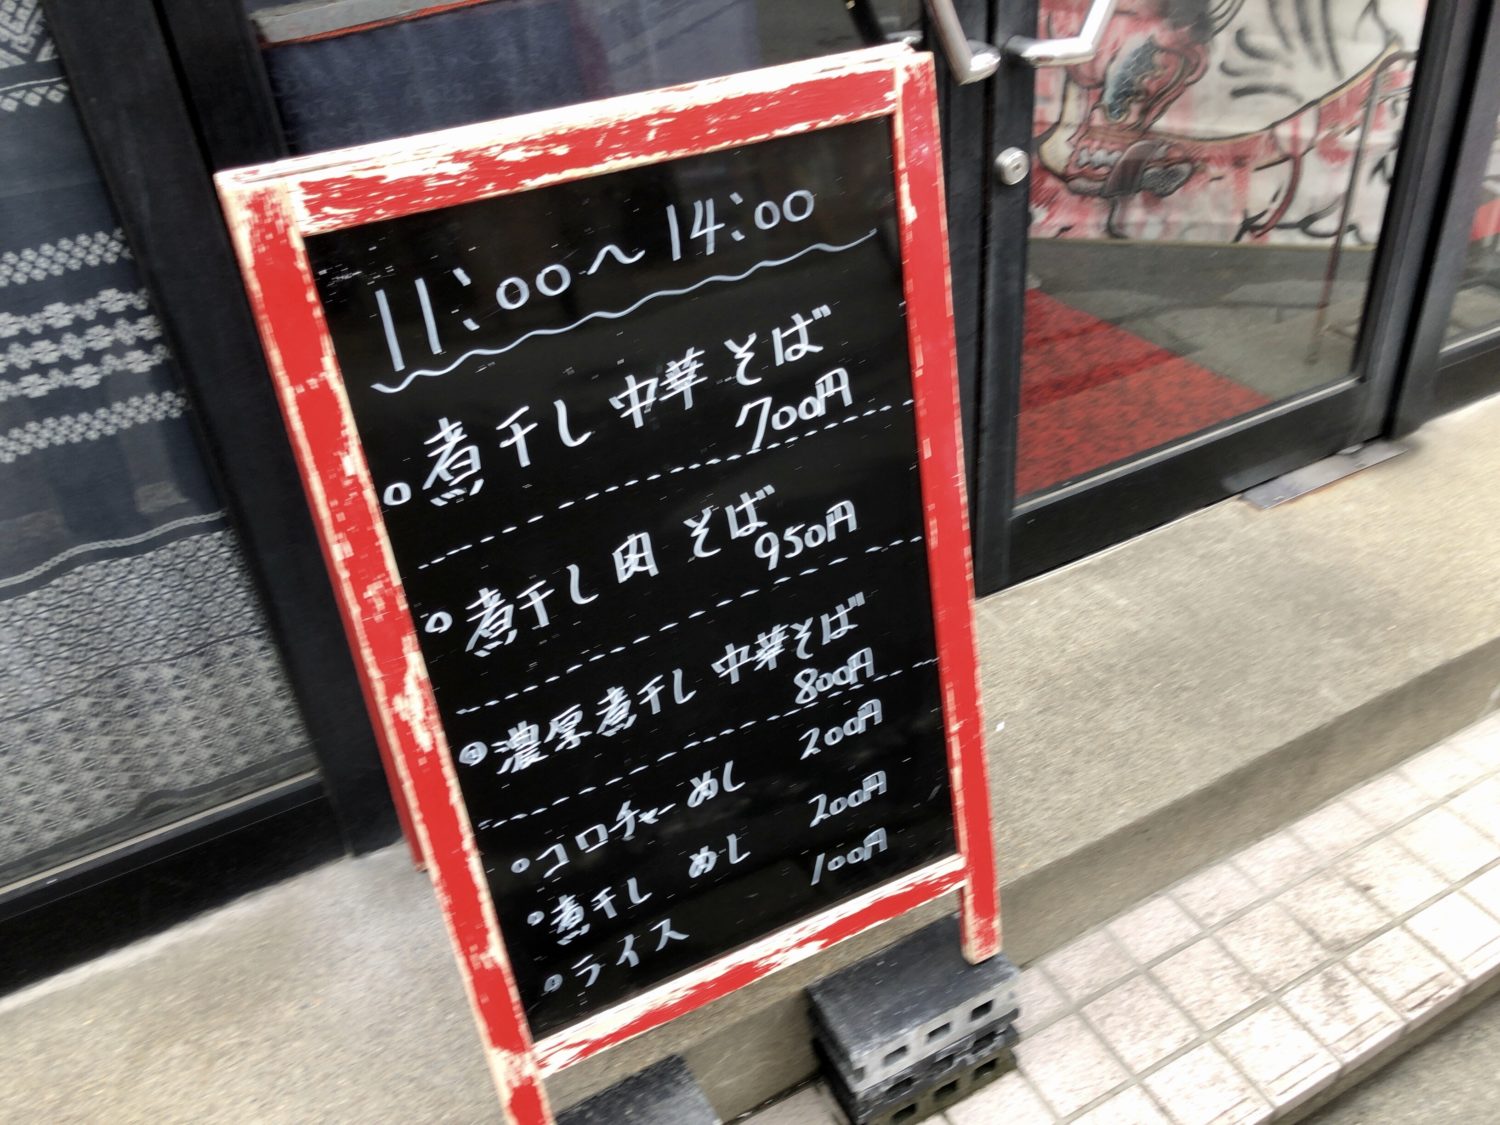 11:00～14:00
○煮干し中華そば
700円
○煮干し肉そば
950円
○濃厚煮干し中華そば
800円
○コロチャーめし 200円
○煮干しめし 200円
○ライス 100円